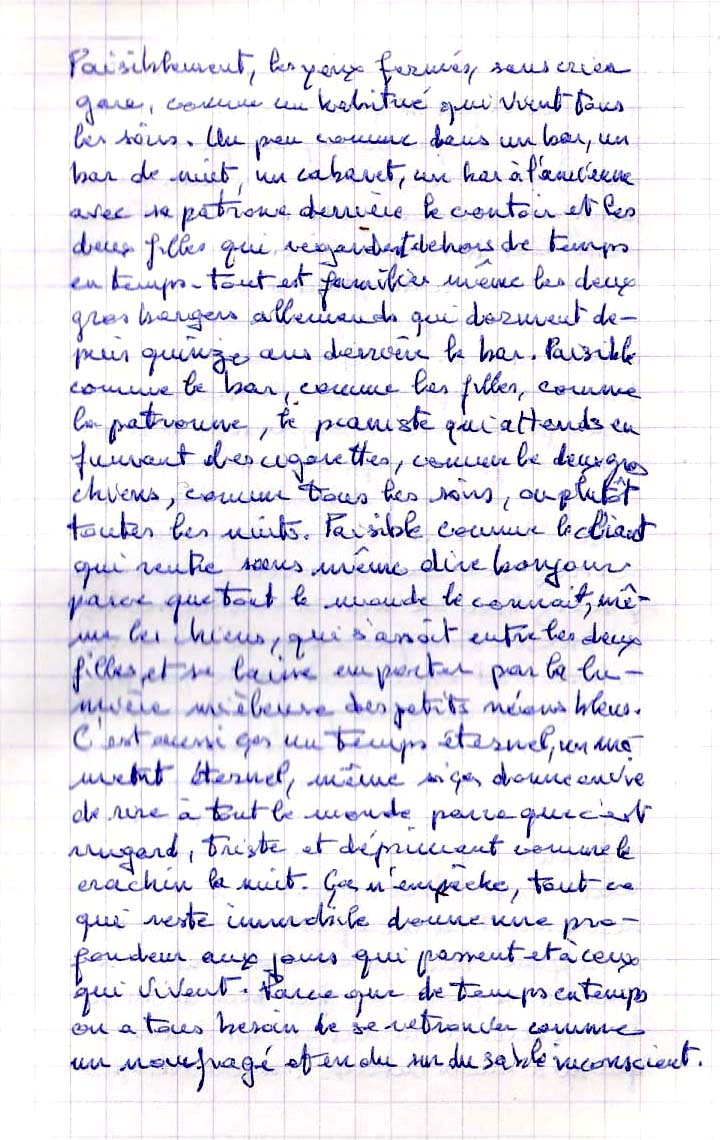 Paisiblement, les yeux fermés, sans crier
gare, comme un habitué qui vient tous
les soirs. Un peu comme dans un bar, un
bar de nuit, un cabaret, un bar à l'ancienne
avec sa patronne derrière le contoir et les
deux filles qui regardent dehors de temps
en temps. tout est familier même les deux
gros bergers allemands qui dorment de-
puis quinze ans derrière le bar. Paisible
comme le bar, comme les filles, comme
la patronne, le pianiste qui attends en
fumant des cigarettes, comme le deux gros
chiens, comme tous les soirs, ou plutôt
toutes les nuits. Paisible comme le client
qui rentre sans même dire bonjour
parce que tout le monde le connait, mê-
me les chiens, qui s'assoit entre les deux
filles, et se laisse emporter par la lu-
mière mielleuse des petits néons bleus.
C'est aussi ça un temps éternel, un mo
ment éternel, même si ça donne envie
de rire à tout le monde parce que c'est
ringard, triste et déprimant comme le
crachin la nuit. Ça n'empêche, tout ce
qui reste immobile donne une pro-
fondeur aux jours qui passent et à ceux
qui vivent. Parce que de temps en temps
on a tous besoin de se retrouver comme
un naufragé étendu sur du sable inconscient.